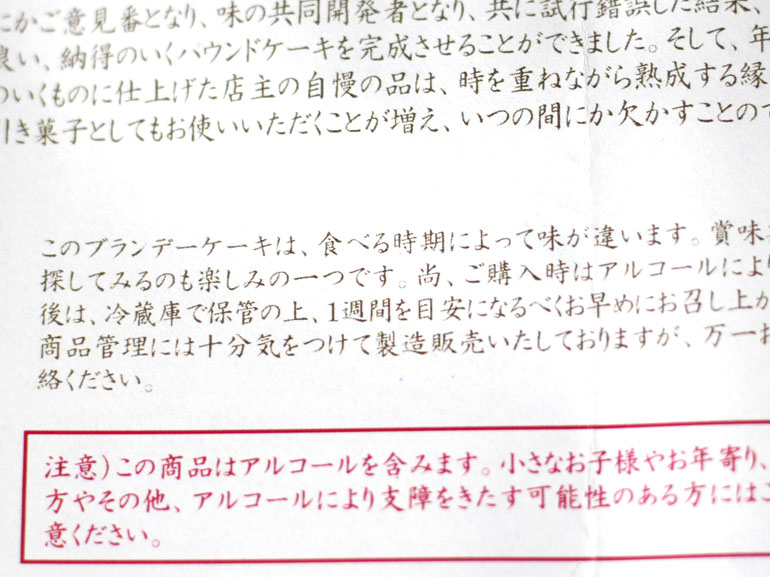 にかご意見番となり、味の共同開発者となり、共に試行錯誤した結果、
良い、納得のいくパウンドケーキを完成させることができました。そして、年
のいくものに仕上げた店主の自慢の品は、時を重ねながら熟成する縁
引き菓子としてもお使いいただくことが増え、いつの間にか欠かすことので
このブランデーケーキは、食べる時期によって味が違います。賞味
探してみるのも楽しみの一つです。尚、ご購入時はアルコールにより
後は、冷蔵庫で保管の上、1週間を目安になるべくお早めにお召し上が
商品管理には十分気をつけて製造販売いたしておりますが、万一お
絡ください。
注意)この商品はアルコールを含みます。小さなお子様やお年寄り、
方やその他、アルコールにより支障をきたす可能性のある方にはご
意ください。